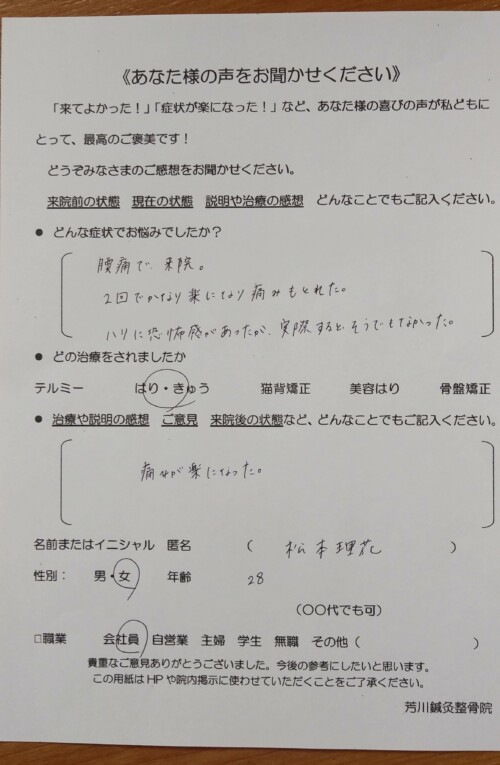 《あなた様の声をお聞かせください》
「来てよかった！」「症状が楽になった！」など、あなた様の喜びの声が私どもに
とって、最高のご褒美です！
どうぞみなさまのご感想をお聞かせください。
来院前の状態 現在の状態 説明や治療の感想 どんなことでもご記入ください。
● どんな症状でお悩みでしたか？
腰痛で来院。
2回でかなり楽になり痛みもとれた。
ハリに恐怖感があったが、実際するとそうでもなかった。
● どの治療をされましたか
テルミー はり・きゅう 猫背矯正 美容はり 骨盤矯正
● 治療や説明の感想 ご意見 来院後の状態など、どんなことでもご記入ください。
痛みが楽になった。
名前またはイニシャル 匿名 （ 松本理花 ）
性別： 男・女 年齢 28
（〇〇代でも可）
□職業 会社員 自営業 主婦 学生 無職 その他（ ）
貴重なご意見ありがとうございました。今後の参考にしたいと思います。
この用紙はHPや院内掲示に使わせていただくことをご了承ください。
芳川鍼灸整骨院